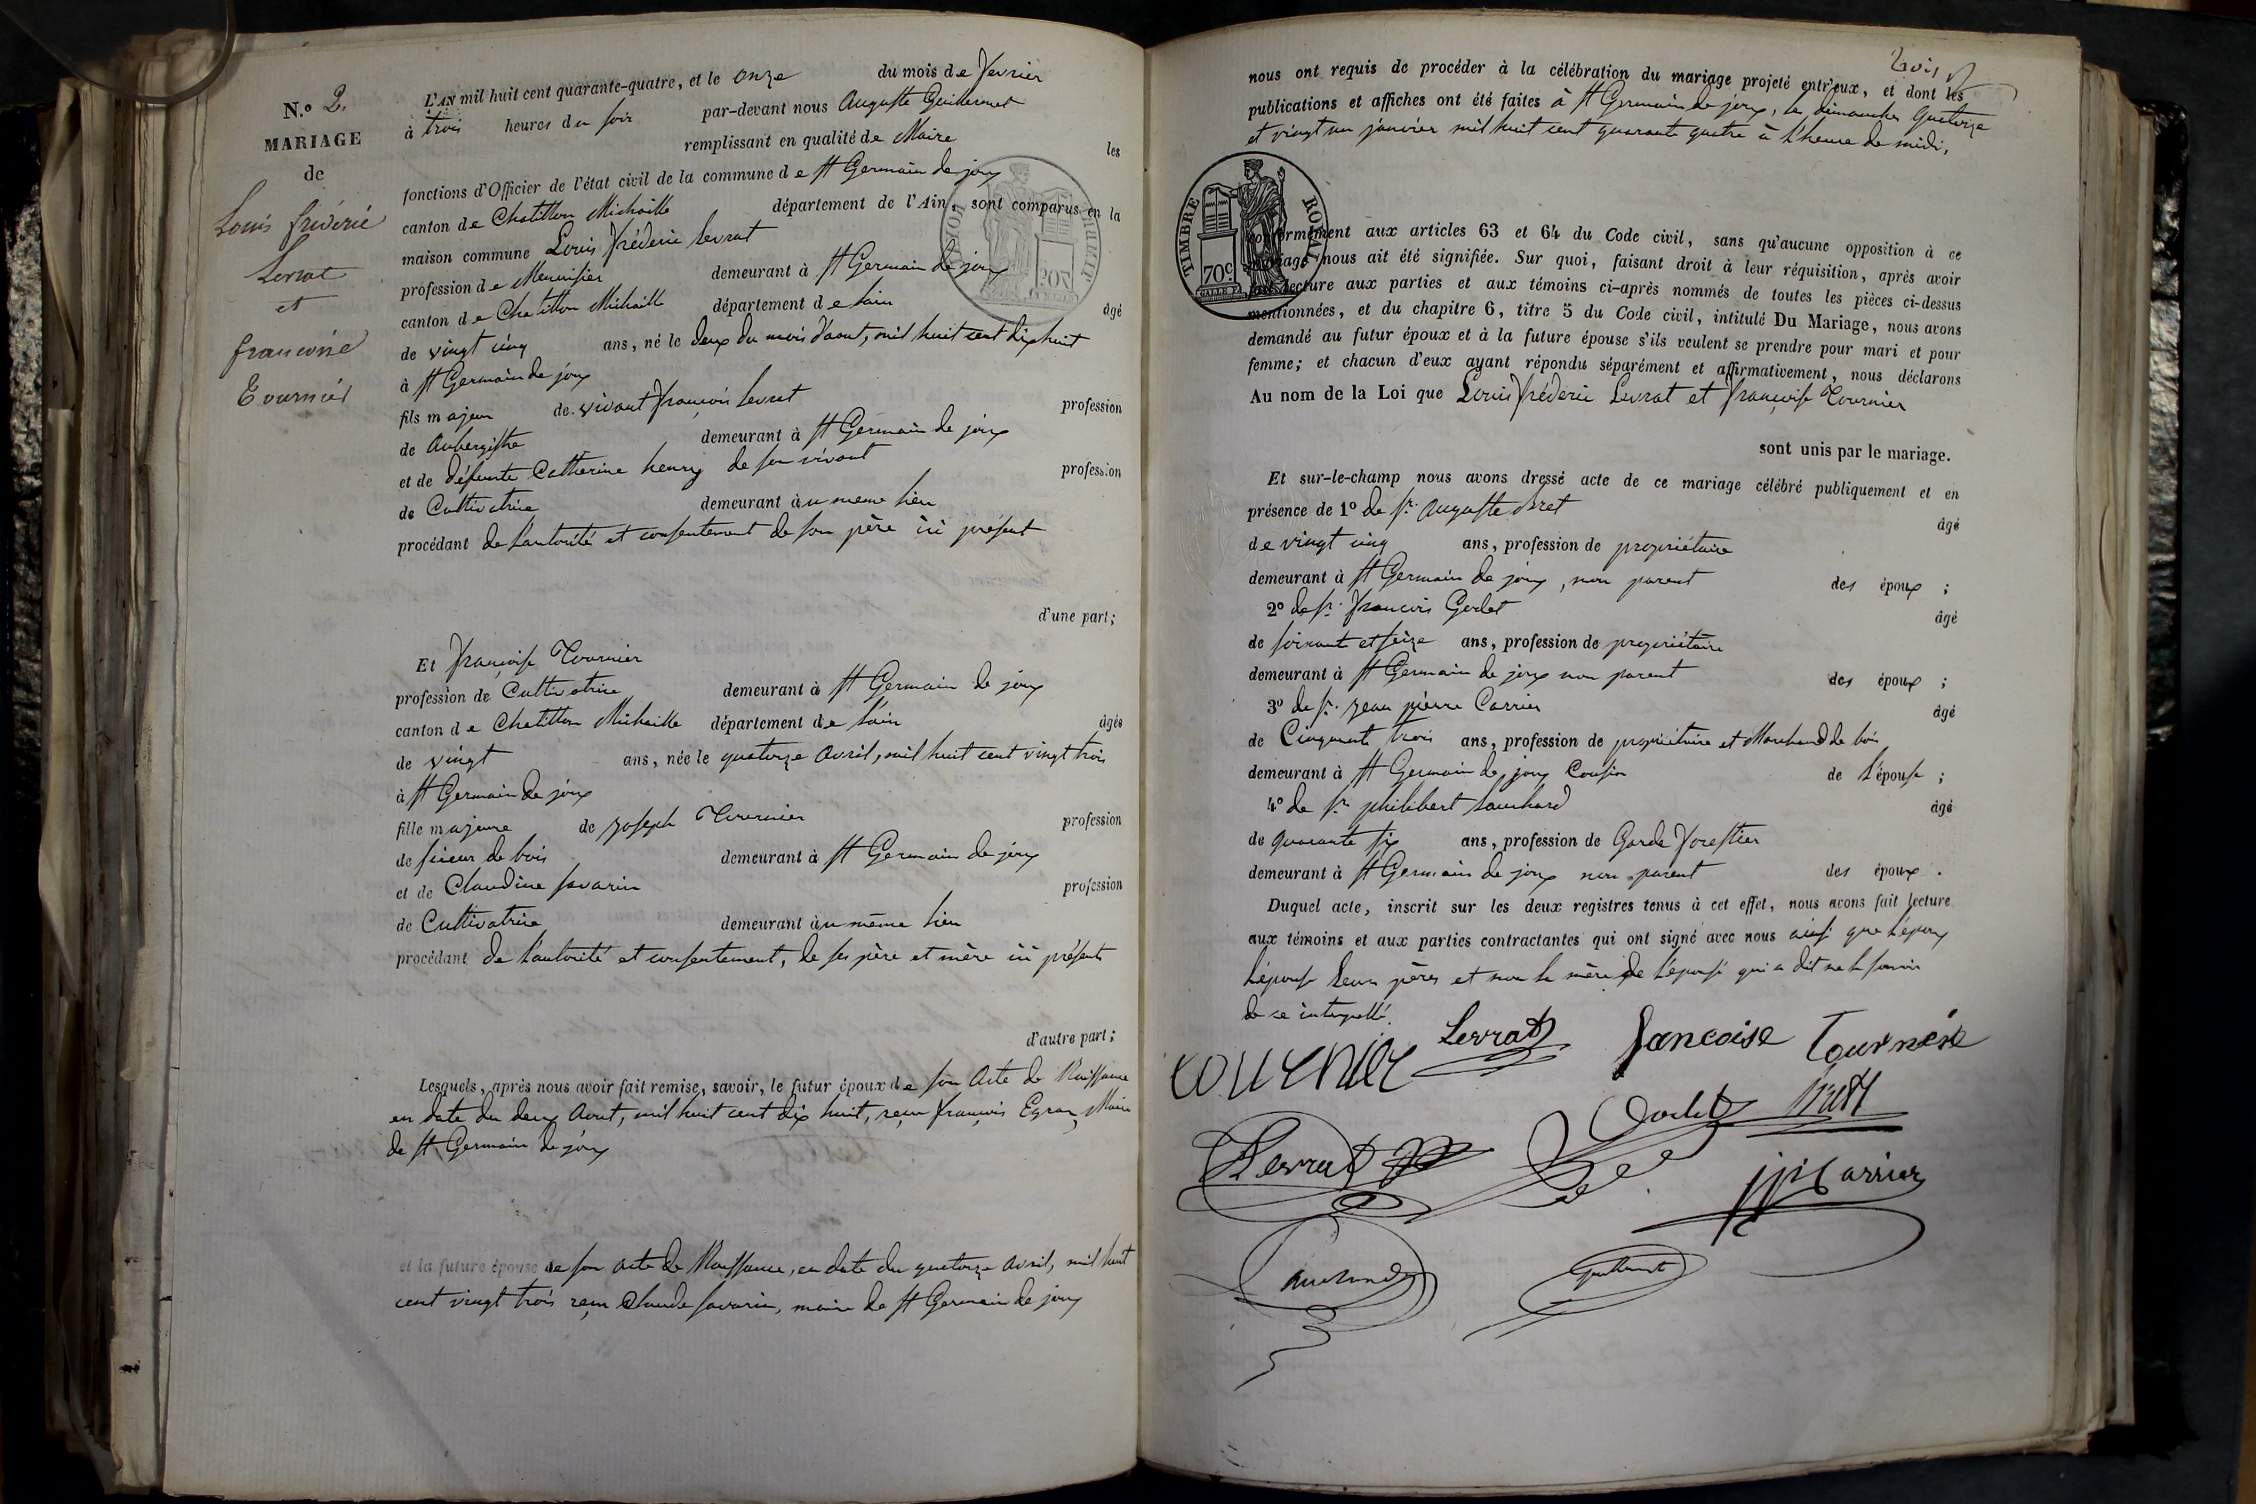 N.º 2.
MARIAGE
de
Louis fréderic
Levrat
et
francoise
Tournier
L'AN mil huit cent quarante-quatre, et le onze du mois de fevrier
à trois heures du soir par-devant nous Auguste Guillermet
remplissant en qualité de Maire les
fonctions d'Officier de l'état civil de la commune de St Germain de joux
canton de Chatillon Michaille département de l'Ain, sont comparus en la
maison commune Louis fréderic Levrat
profession de Menuisier demeurant à St Germain de joux
canton de Chatillon Michaille département de lain âgé
de vingt cinq ans, né le deux du mois d'aout, mil huit cent dix huit
à St Germain de joux
fils majeur de vivant françois Levrat profession
de Aubergiste demeurant à St Germain de joux
et de défunte Catherine henry de son vivant profession
de Cultivatrice demeurant àu meme lieu
procédant de l'autorité et consentement de son père ici présent
d'une part;
Et françoise Tournier
profession de Cultivatrice demeurant à St Germain de joux
canton de Chatillon Michaille département de lain âgée
de vingt ans, née le quatorze avril, mil huit cent vingt trois
à St Germain de joux
fille majeure de joseph Tournier profession
de scieur de bois demeurant à St Germain de joux
et de Claudine savarin profession
de Cultivatrice demeurant àu même lieu
procédant de l'autorité et consentement, de ses père et mère ici présents
d'autre part;
Lesquels, après nous avoir fait remise, savoir, le futur époux de son Acte de Naissance
en date du deux Aout, mil huit cent dix huit, reçu françois Maire
de St Germain de joux
et la future épouse de son acte de Naissance, en date du quatorze avril, mil huit
cent vingt trois reçu Claude savarin, maire de St Germain de joux
trois
nous ont requis de procéder à la célébration du mariage projeté entr'eux, et dont les
publications et affiches ont été faites à St Germain de joux, les dimanches Quatorze
et vingt un janvier mil huit cent quarante quatre à l'heure de midi,
TIMBRE ROYAL
70c
conformément aux articles 63 et 64 du Code civil, sans qu'aucune opposition à ce
mariage nous ait été signifiée. Sur quoi, faisant droit à leur réquisition, après avoir
fait lecture aux parties et aux témoins ci-après nommés de toutes les pièces ci-dessus
mentionnées, et du chapitre 6, titre 5 du Code civil, intitulé Du Mariage, nous avons
demandé au futur époux et à la future épouse s'ils veulent se prendre pour mari et pour
femme; et chacun d'eux ayant répondu séparément et affirmativement, nous déclarons
Au nom de la Loi que Louis fréderic Levrat et françoise Tournier
sont unis par le mariage.
Et sur-le-champ nous avons dressé acte de ce mariage célébré publiquement et en
présence de 1º de sr. auguste Bret âgé
de vingt cinq ans, profession de propriétaire
demeurant à St Germain de joux, non parent des époux ;
2º de sr. françois Godet âgé
de soixante et seize ans, profession de propriétaire
demeurant à St Germain de joux non parent des époux ;
3º de sr. jean pierre Carrier âgé
de Cinquante trois ans, profession de propriétaire et Marchand de bois
demeurant à St Germain de joux Cousin de l'épouse ;
4º de sr. philibert âgé
de quarante six ans, profession de Garde forestier
demeurant à St Germain de joux non parent des époux.
Duquel acte, inscrit sur les deux registres tenus à cet effet, nous avons fait lecture
aux témoins et aux parties contractantes qui ont signé avec nous ainsi que l'époux
l'épouse leurs pères et non la mère de l'épouse qui a dit ne le savoir
de ce interpellé.
tournier Levrat francoise Tournier
Godet Bret
Levrat jp Carrier
Guillermet